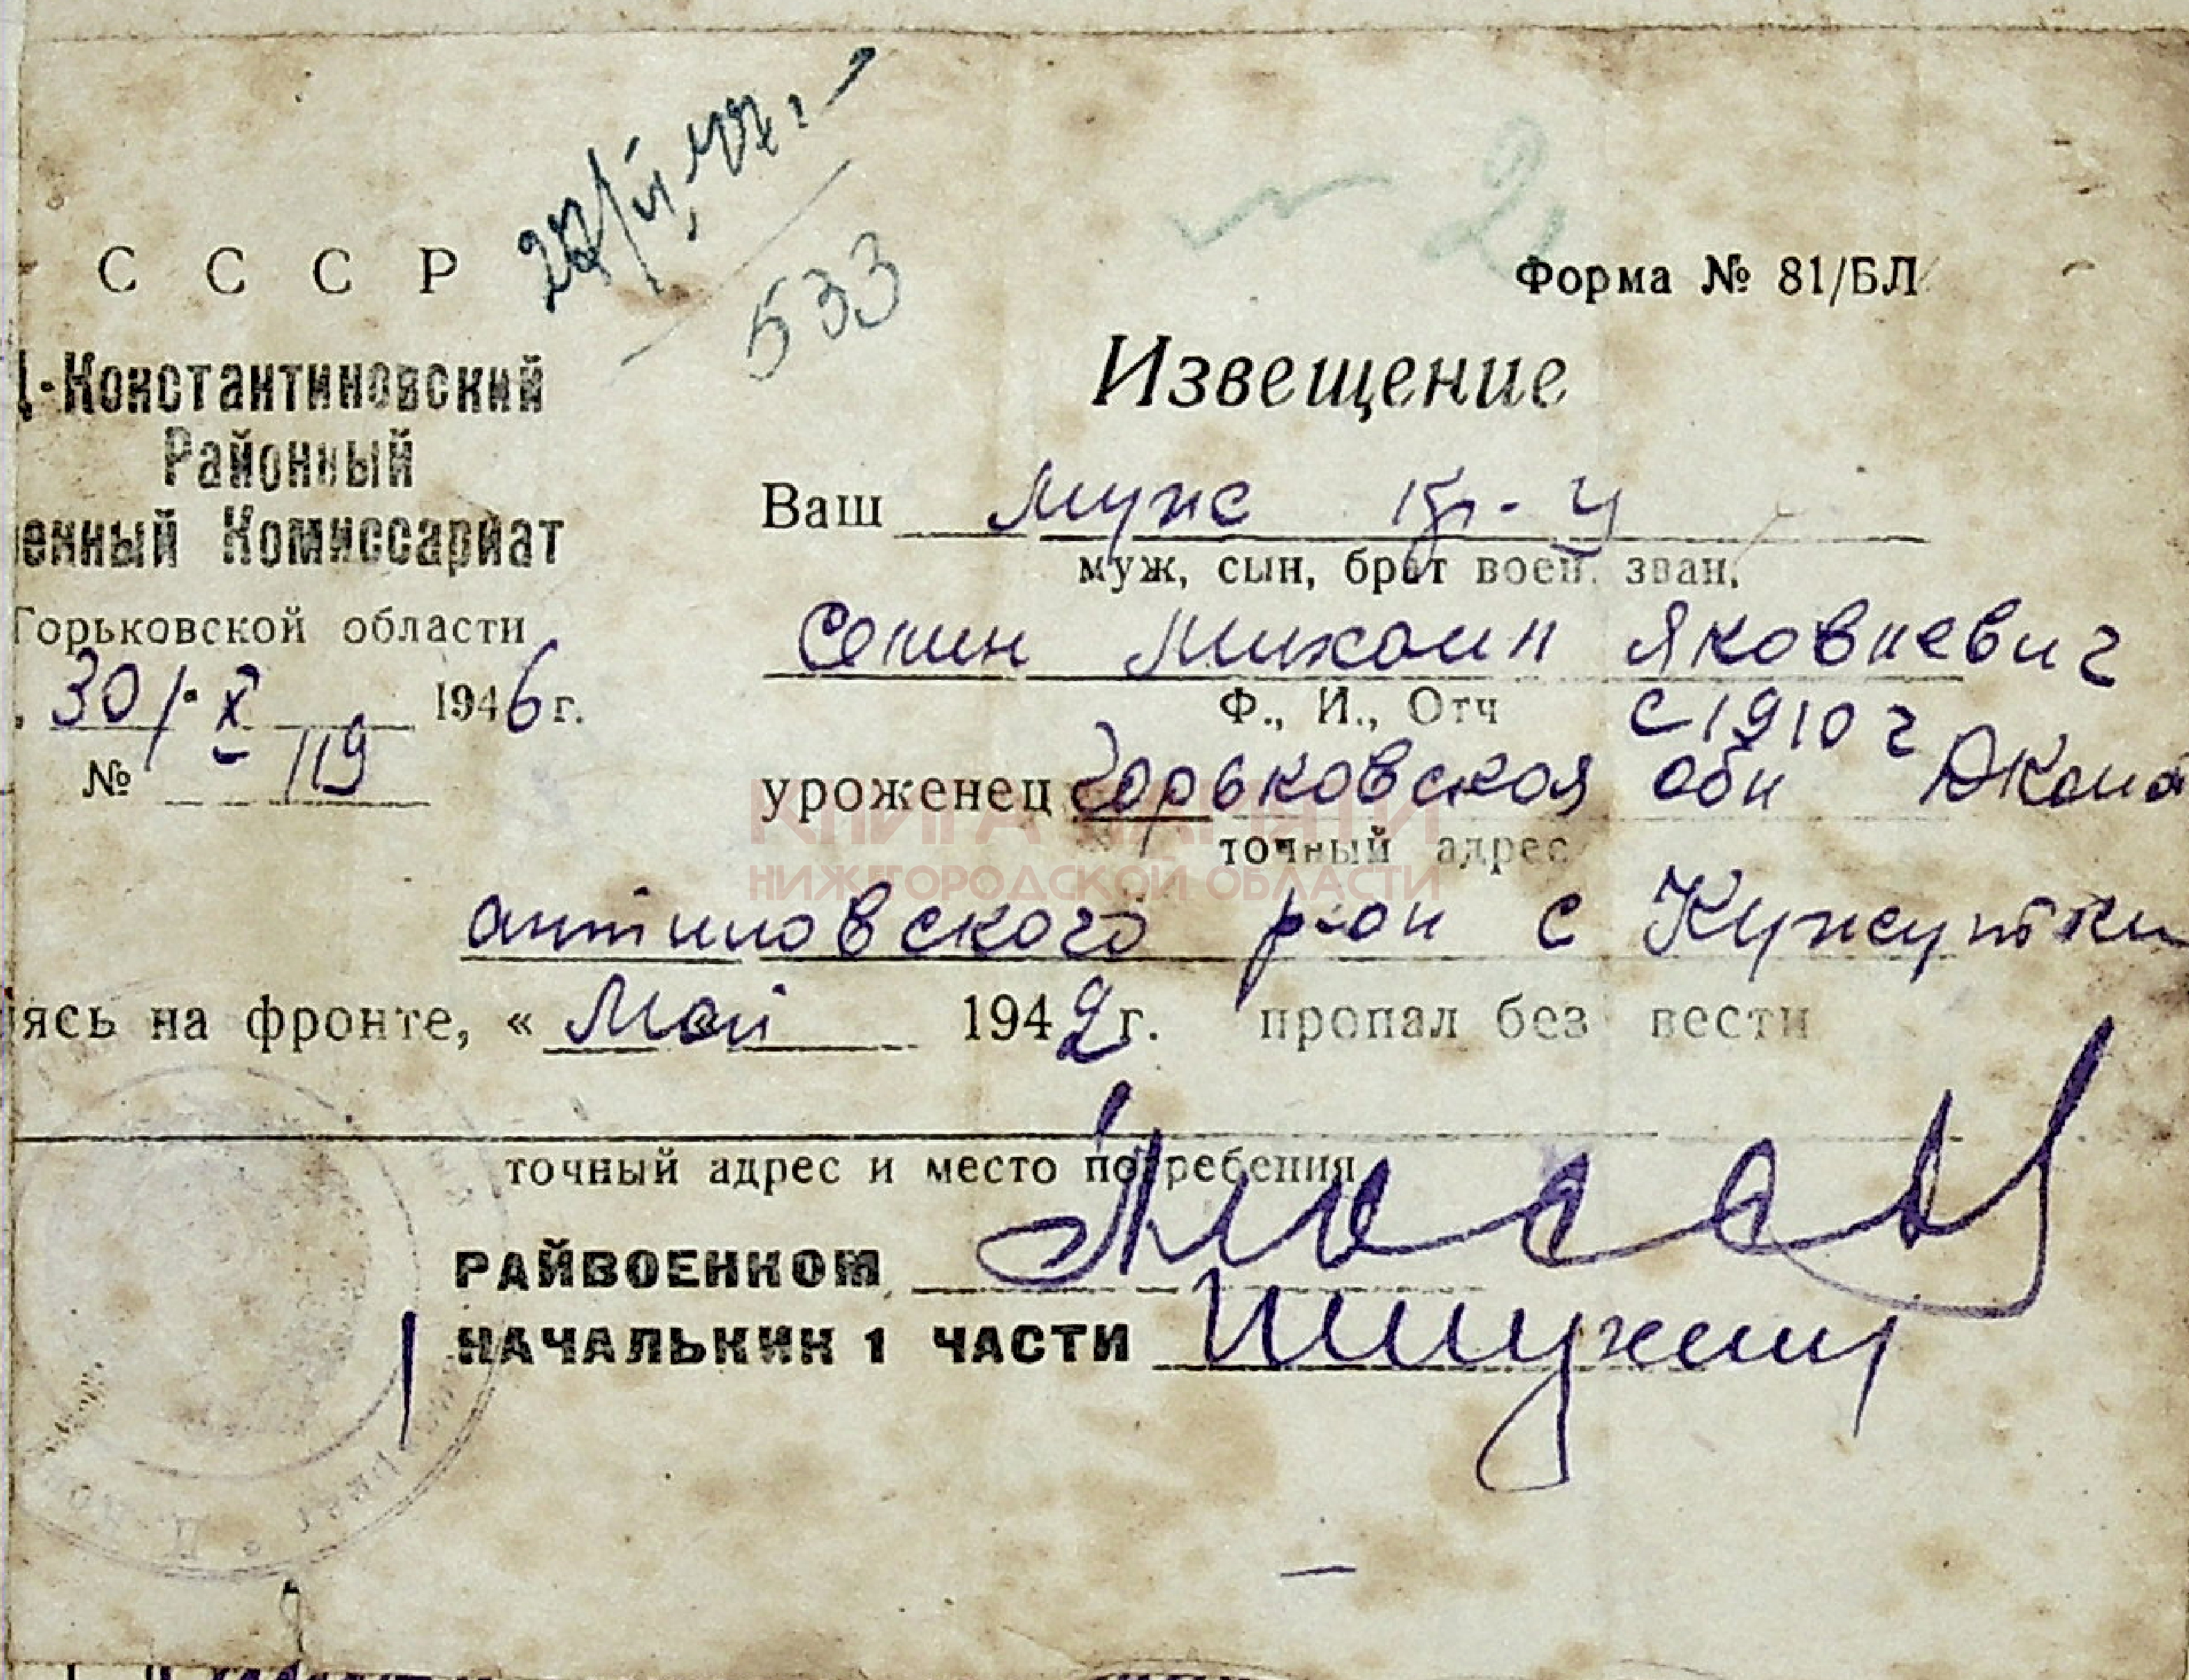 27/II-47г.
533
№ 2
СССР
Форма № 81/БЛ
Д-Константиновский
Районный
енный Комиссариат
Горьковской области
30/X 1946 г.
№ 119
Извещение
Ваш муж кр-ц
муж, сын, брат воен. зван.
Сенин Михаил Яковлевич
Ф., И., Отч с 1910 г
уроженец Горьковская обл ДКонст
точный адрес
КНИГА ПАМЯТИ
НИЖЕГОРОДСКОЙ ОБЛАСТИ
антиновского р-он с Кужутки
ясь на фронте, « Май 1942 г. пропал без вести
точный адрес и место погребения
РАЙВОЕНКОМ
НАЧАЛЬНИК 1 ЧАСТИ